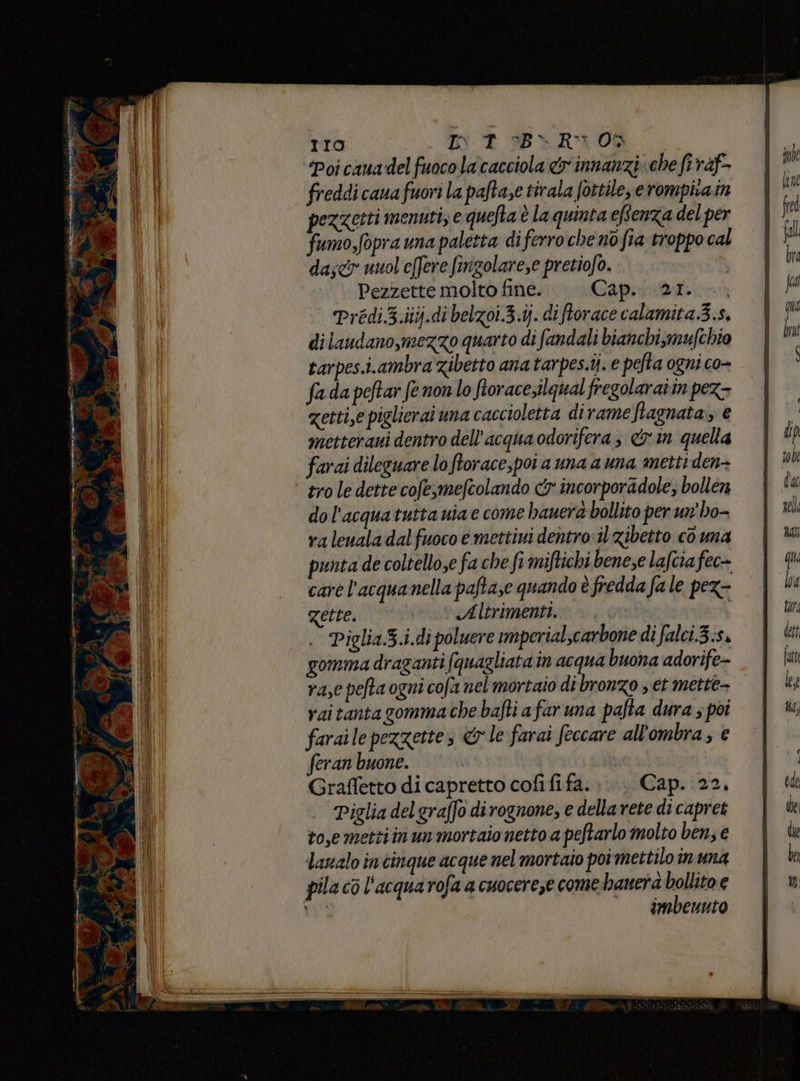 110 L I B R O
Poi caua del fuoco la cacciola & innanzi che ſi raf-
freddi caua fuori la paſta,e tirala ſottile, e rompila in
pezzetti menuti, e queſta è la quinta eſſenza del per
fumo,ſopra una paletta di ferro che nõ ſia troppo cal
da,& uuol eſſere ſingolare,e pretioſo.
Pezzette molto fine. Cap. 21.
Prẽdi.ℨ.iiij.di belzoi.ℨ.ij. di ſtorace calamita.ℨ.s.
di laudano,mezzo quarto di ſandali bianchi,muſchio
tarpes.i.ambra zibetto ana tarpes.ij. e peſta ogni co-
ſa da peſtar ſe non lo ſtorace,ilqual fregolarai in pez-
zetti,e piglierai una caccioletta di rame ſtagnata, e
metteraui dentro dell'acqua odorifera , & in quella
farai dileguare lo ſtorace,poi a una a una metti den-
tro le dette coſe,meſcolando & incorporãdole, bollen
do l'acqua tutta uia e come hauerà bollito per un'ho-
ra leuala dal fuoco e mettiui dentro il zibetto cõ una
punta de coltello,e fa che ſi miſtichi bene,e laſcia ſec-
care l'acqua nella paſta,e quando è fredda fa le pez-
zette. Altrimenti.
Piglia.ℨ.i.di poluere imperial,carbone di ſalci.ℨ.s.
gomma draganti ſquagliata in acqua buona adorife-
ra,e peſta ogni coſa nel mortaio di bronzo , et mette-
rai tanta gomma che baſti a far una paſta dura , poi
farai le pezzette , & le farai ſeccare all'ombra , e
ſeran buone.
Graſſetto di capretto coſi ſi fa. Cap. 22.
Piglia del graſſo di rognone, e della rete di capret
to,e metti in un mortaio netto a peſtarlo molto ben, e
laualo in cinque acque nel mortaio poi mettilo in una
pila cõ l'acqua roſa a cuocere,e come hauerà bollito e
imbeuuto